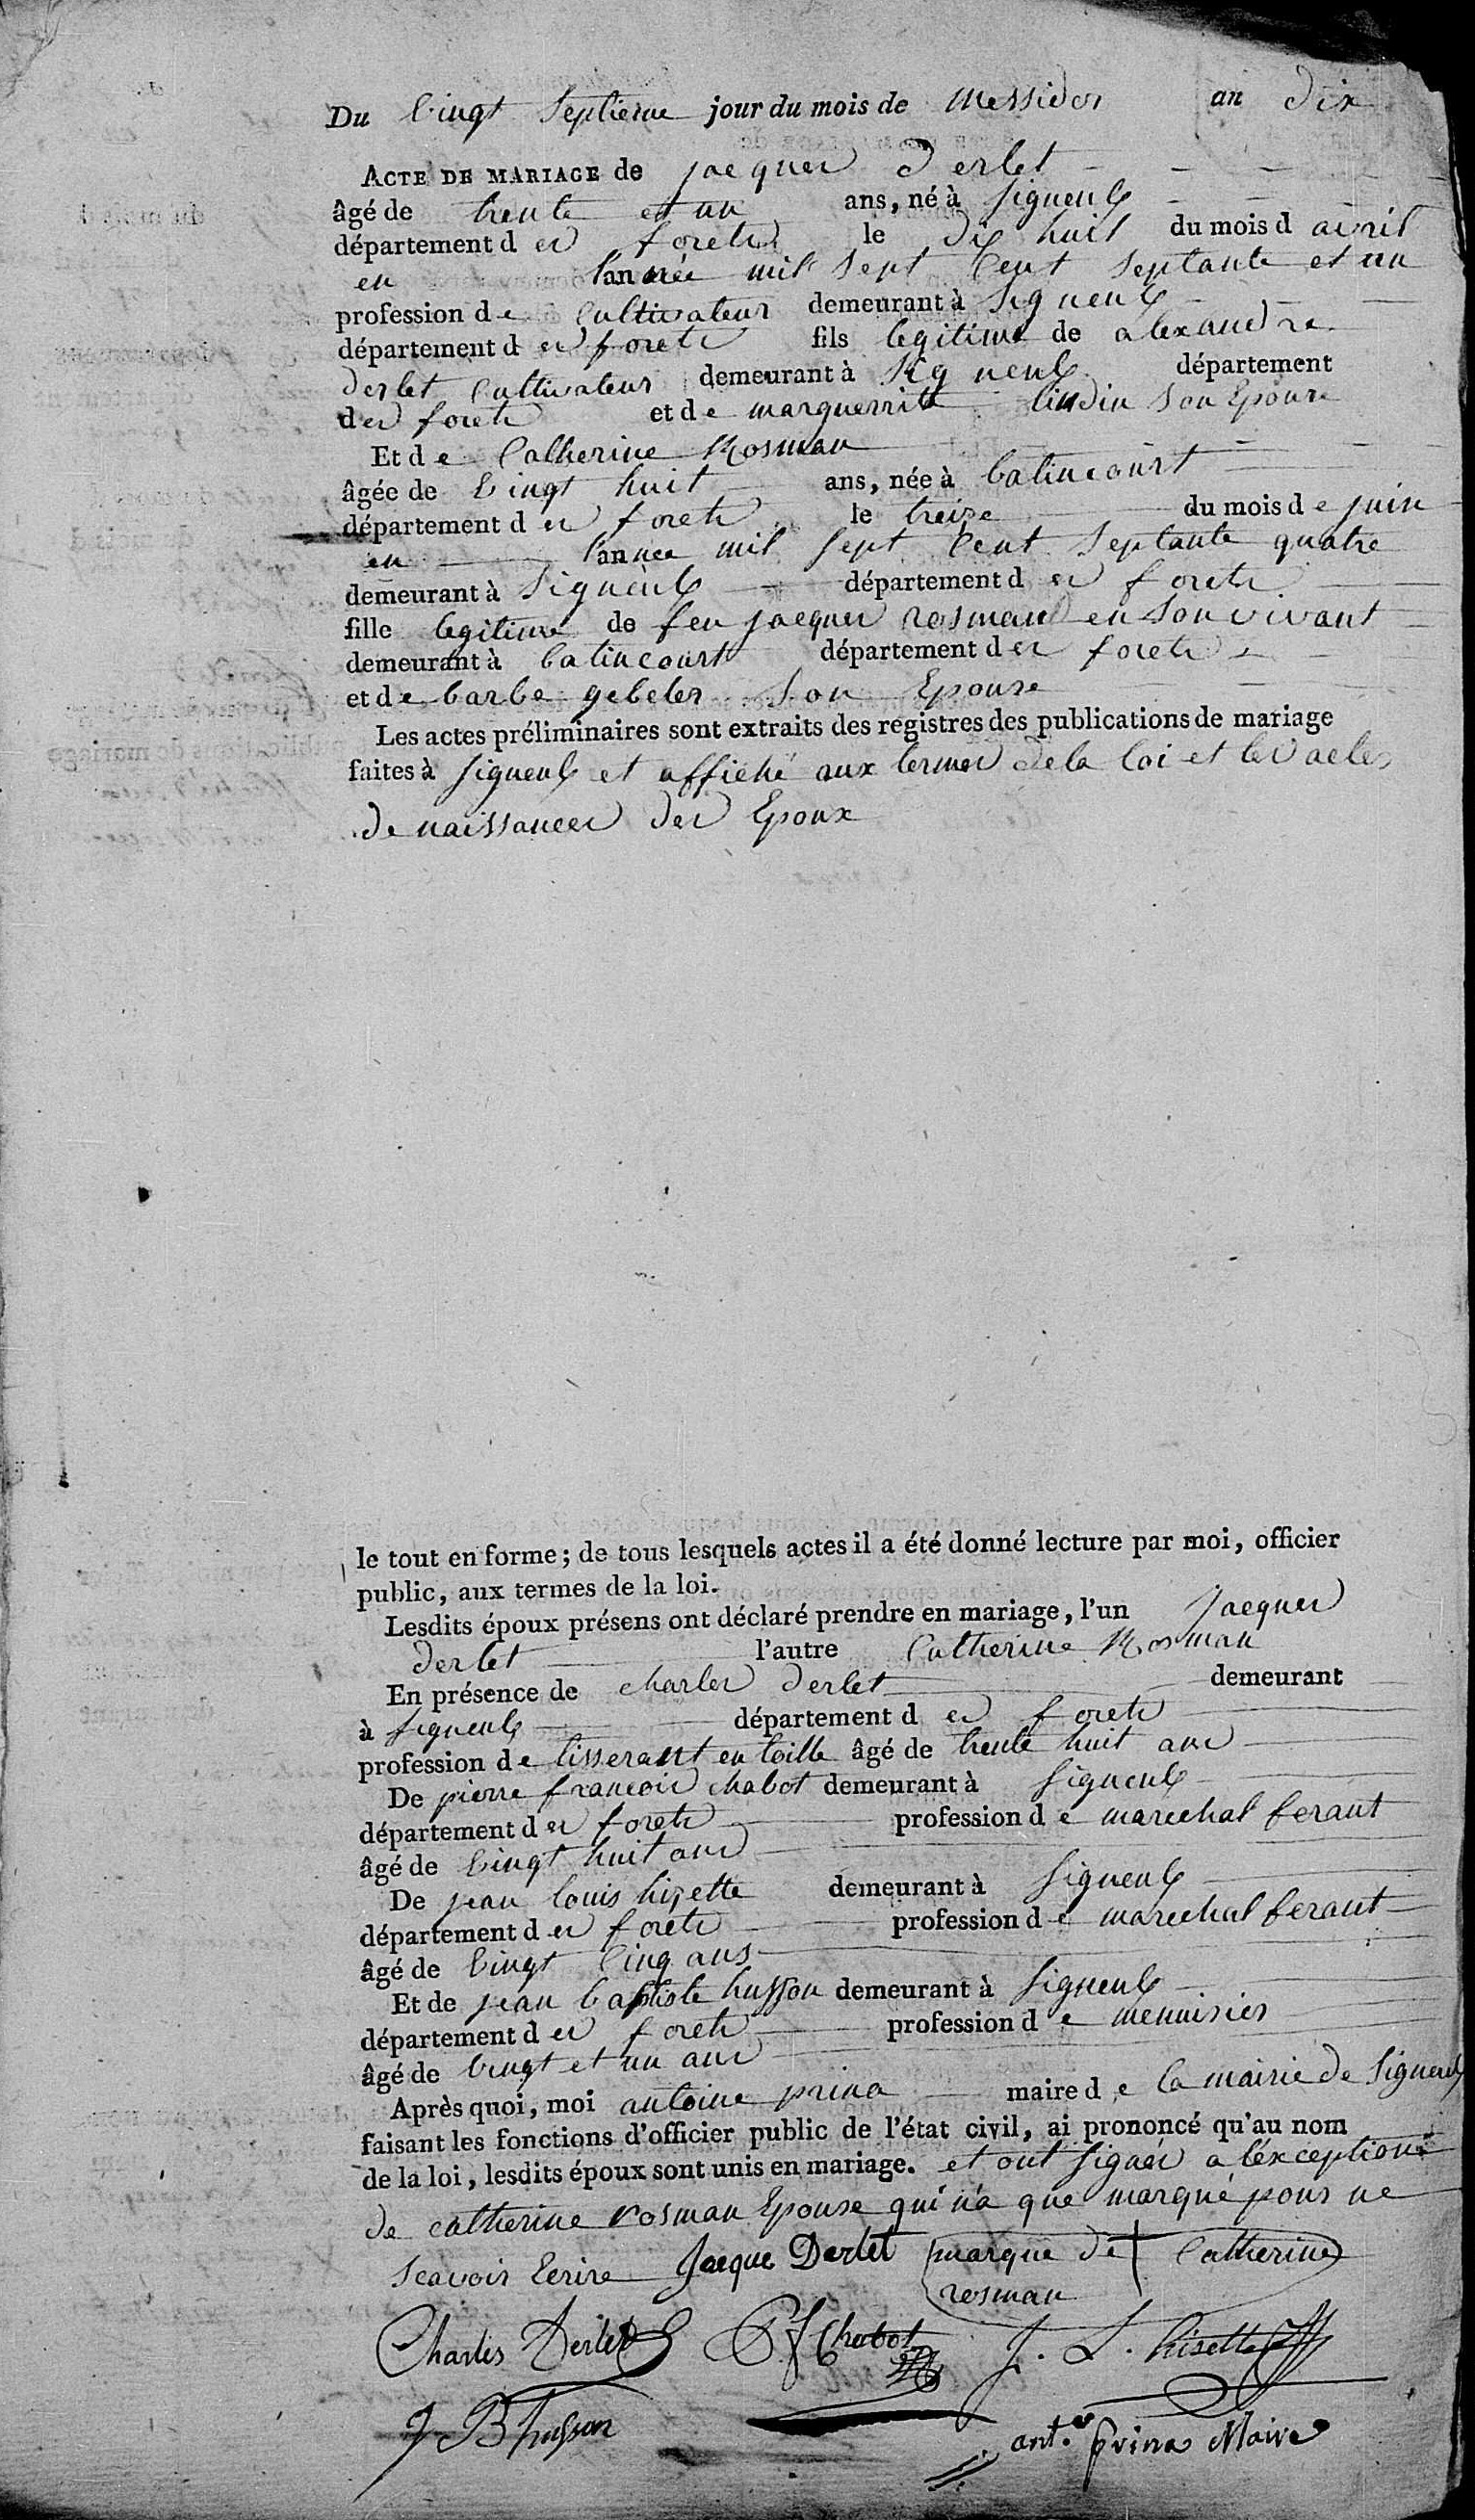 Du vingt Septieme jour du mois de Messidor an dix
ACTE DE MARIAGE de jacques derlet
âgé de trente et un ans, né à signeulx
département des forets le dix huit du mois d avril
en l'année mil sept cent septante et un
profession de cultivateur demeurant à signeulx
département des forets fils legitime de alexandre
derlet cultivateur demeurant à signeulx département
des forets et de marguerrite son Epouse
Et de Catherine Rosman
âgée de vingt huit ans, née à batincourt
département des forets le treize du mois de juin
en l'annee mil sept cent septante quatre
demeurant à signeulx département des forets
fille legitime de feu jacques rosman en son vivant
demeurant à batincourt département des forets
et de barbe gebeler son Epouse
Les actes préliminaires sont extraits des registres des publications de mariage
faites à signeulx et affiché aux termes de la loi et les actes
de naissances des Epoux
le tout en forme; de tous lesquels actes il a été donné lecture par moi, officier
public, aux termes de la loi.
Lesdits époux présens ont déclaré prendre en mariage, l'un jacques
derlet l'autre Catherine Rosman
En présence de charles derlet demeurant
à signeulx département des forets
profession de tisserant en toille âgé de trente huit ans
De pierre francois chabot demeurant à signeulx
département des forets profession de marechal ferant
âgé de vingt huit ans
De jean louis hizette demeurant à signeulx
département des forets profession de marechal ferant
âgé de vingt cinq ans
Et de jean baptiste husson demeurant à signeulx
département des forets profession de menuisier
âgé de vingt et un ans
Après quoi, moi antoine prina maire de la mairie de signeulx
faisant les fonctions d'officier public de l'état civil, ai prononcé qu'au nom
de la loi, lesdits époux sont unis en mariage. et ont signés a léxception
de catherine rosman Epouse qui n'a que marqué pour ne
scavoir Ecrire Jacque Derlet marque de † Catherine
rosman
Charles Derlet P f Chabot J. L. hisette
J B husson ant.e prina Maire